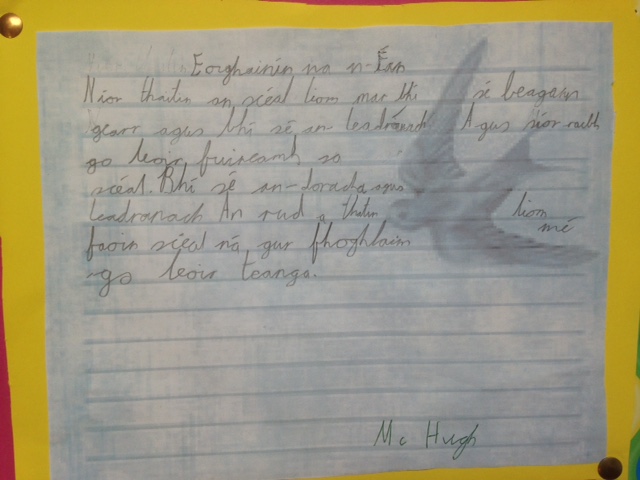 Eoghainín na n-Éan
Níor thaitin an scéal liom mar bhí sé beagáin
gearr agus bhí sé an leadránach Agus níor raibh
go leoir fuireamh so
scéal. Bhí sé an-dorcada agus
leadranach An rud a thaitin liom
faoin scéal ná gur fhoghlaim mé
go leoir teanga.
Mc Hugh